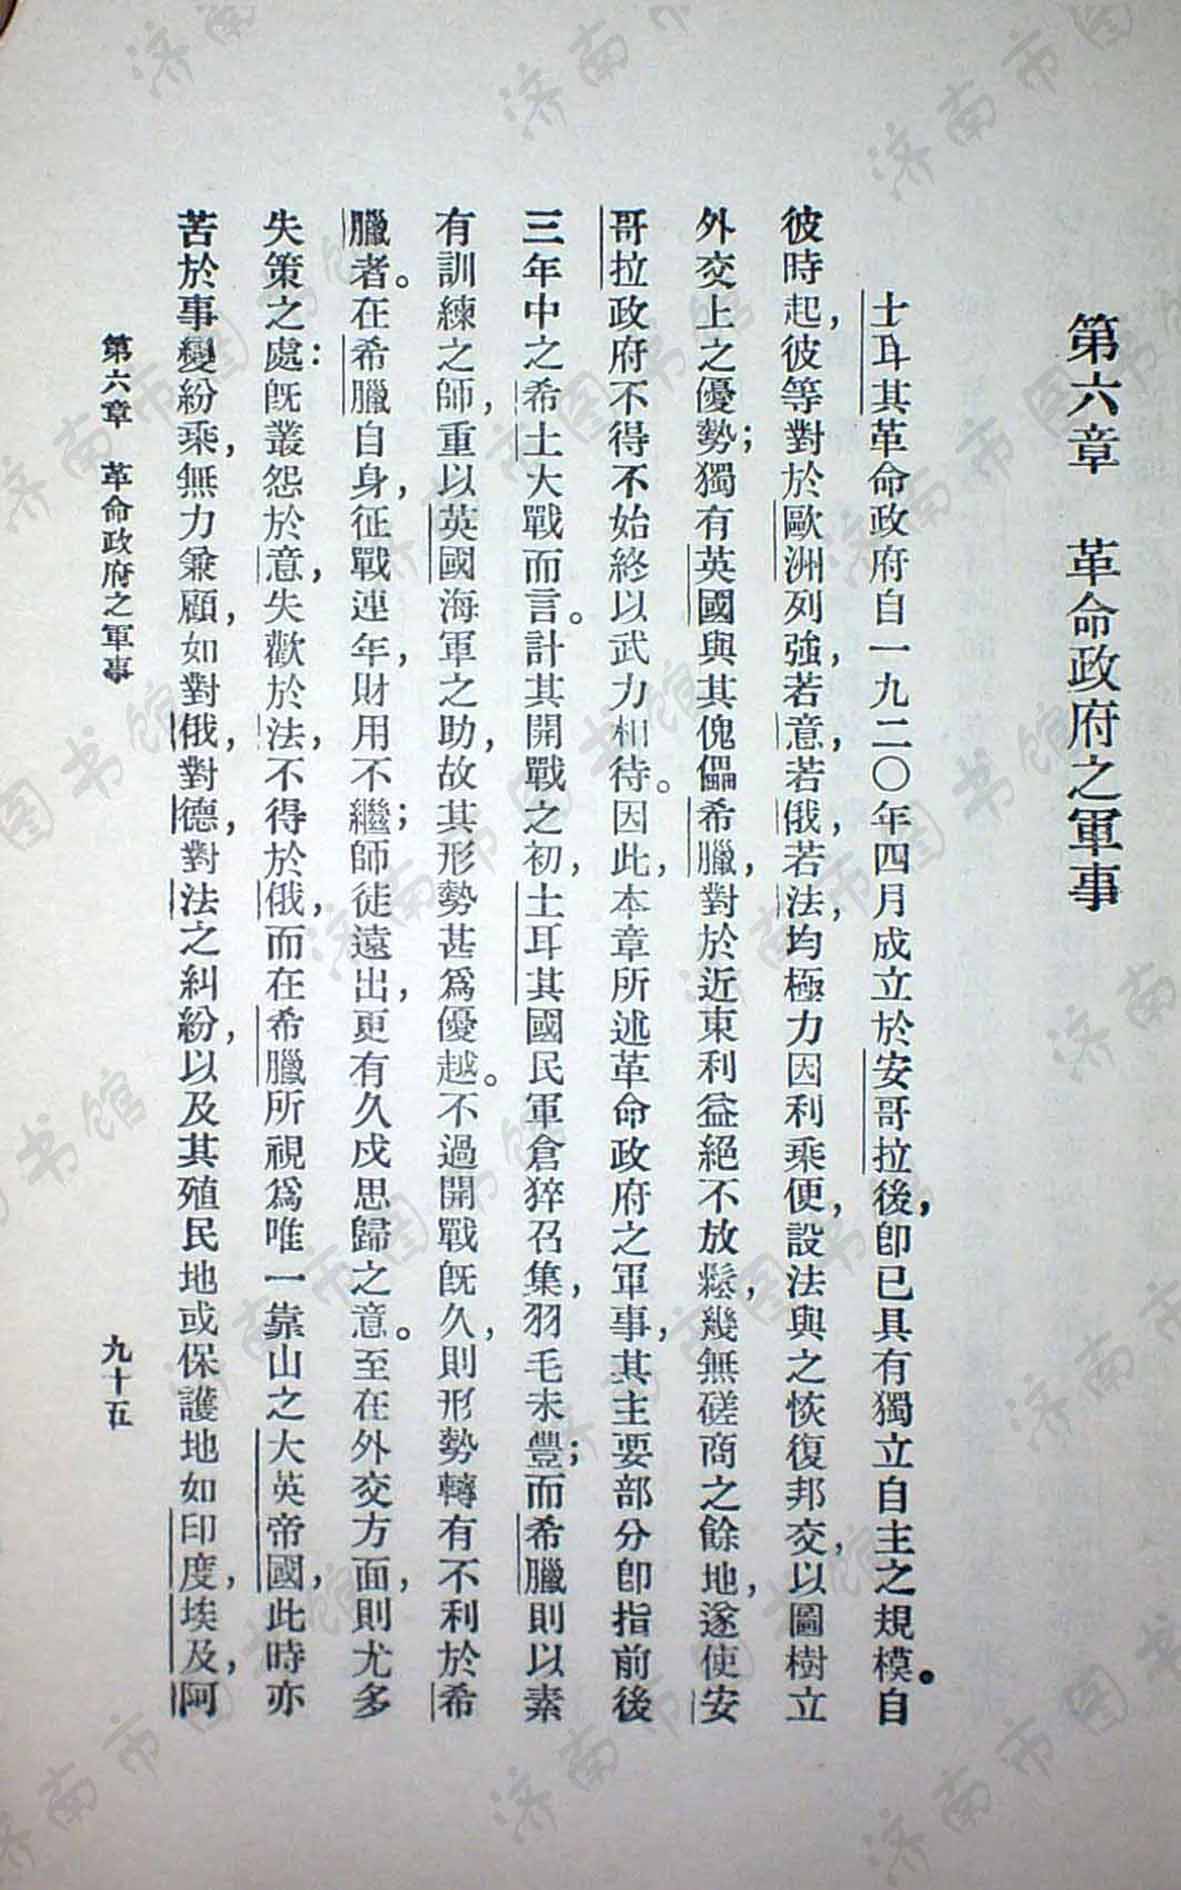 第六章　革命政府之軍事
土耳其革命政府自一九二〇年四月成立於安哥拉後，卽已具有獨立自主之規模。自
彼時起，彼等對於歐洲列強，若意，若俄，若法，均極力因利乘便，設法與之恢復邦交，以圖樹立
外交上之優勢；獨有英國與其傀儡希臘，對於近東利益絕不放鬆，幾無磋商之餘地，遂使安
哥拉政府不得不始終以武力相待。因此，本章所述革命政府之軍事，其主要部分卽指前後
三年中之希土大戰而言。計其開戰之初，土耳其國民軍倉猝召集，羽毛未豐；而希臘則以素
有訓練之師，重以英國海軍之助，故其形勢甚爲優越。不過開戰旣久，則形勢轉有不利於希
臘者。在希臘自身，征戰連年，財用不繼；師徒遠出，更有久戍思歸之意。至在外交方面，則尤多
失策之處：旣叢怨於意，失歡於法，不得於俄，而在希臘所視爲唯一靠山之大英帝國，此時亦
苦於事變紛乘，無力兼顧，如對俄，對德，對法之糾紛，以及其殖民地或保護地如印度，埃及，阿
第六章　革命政府之軍事
九十五
济南市图书馆